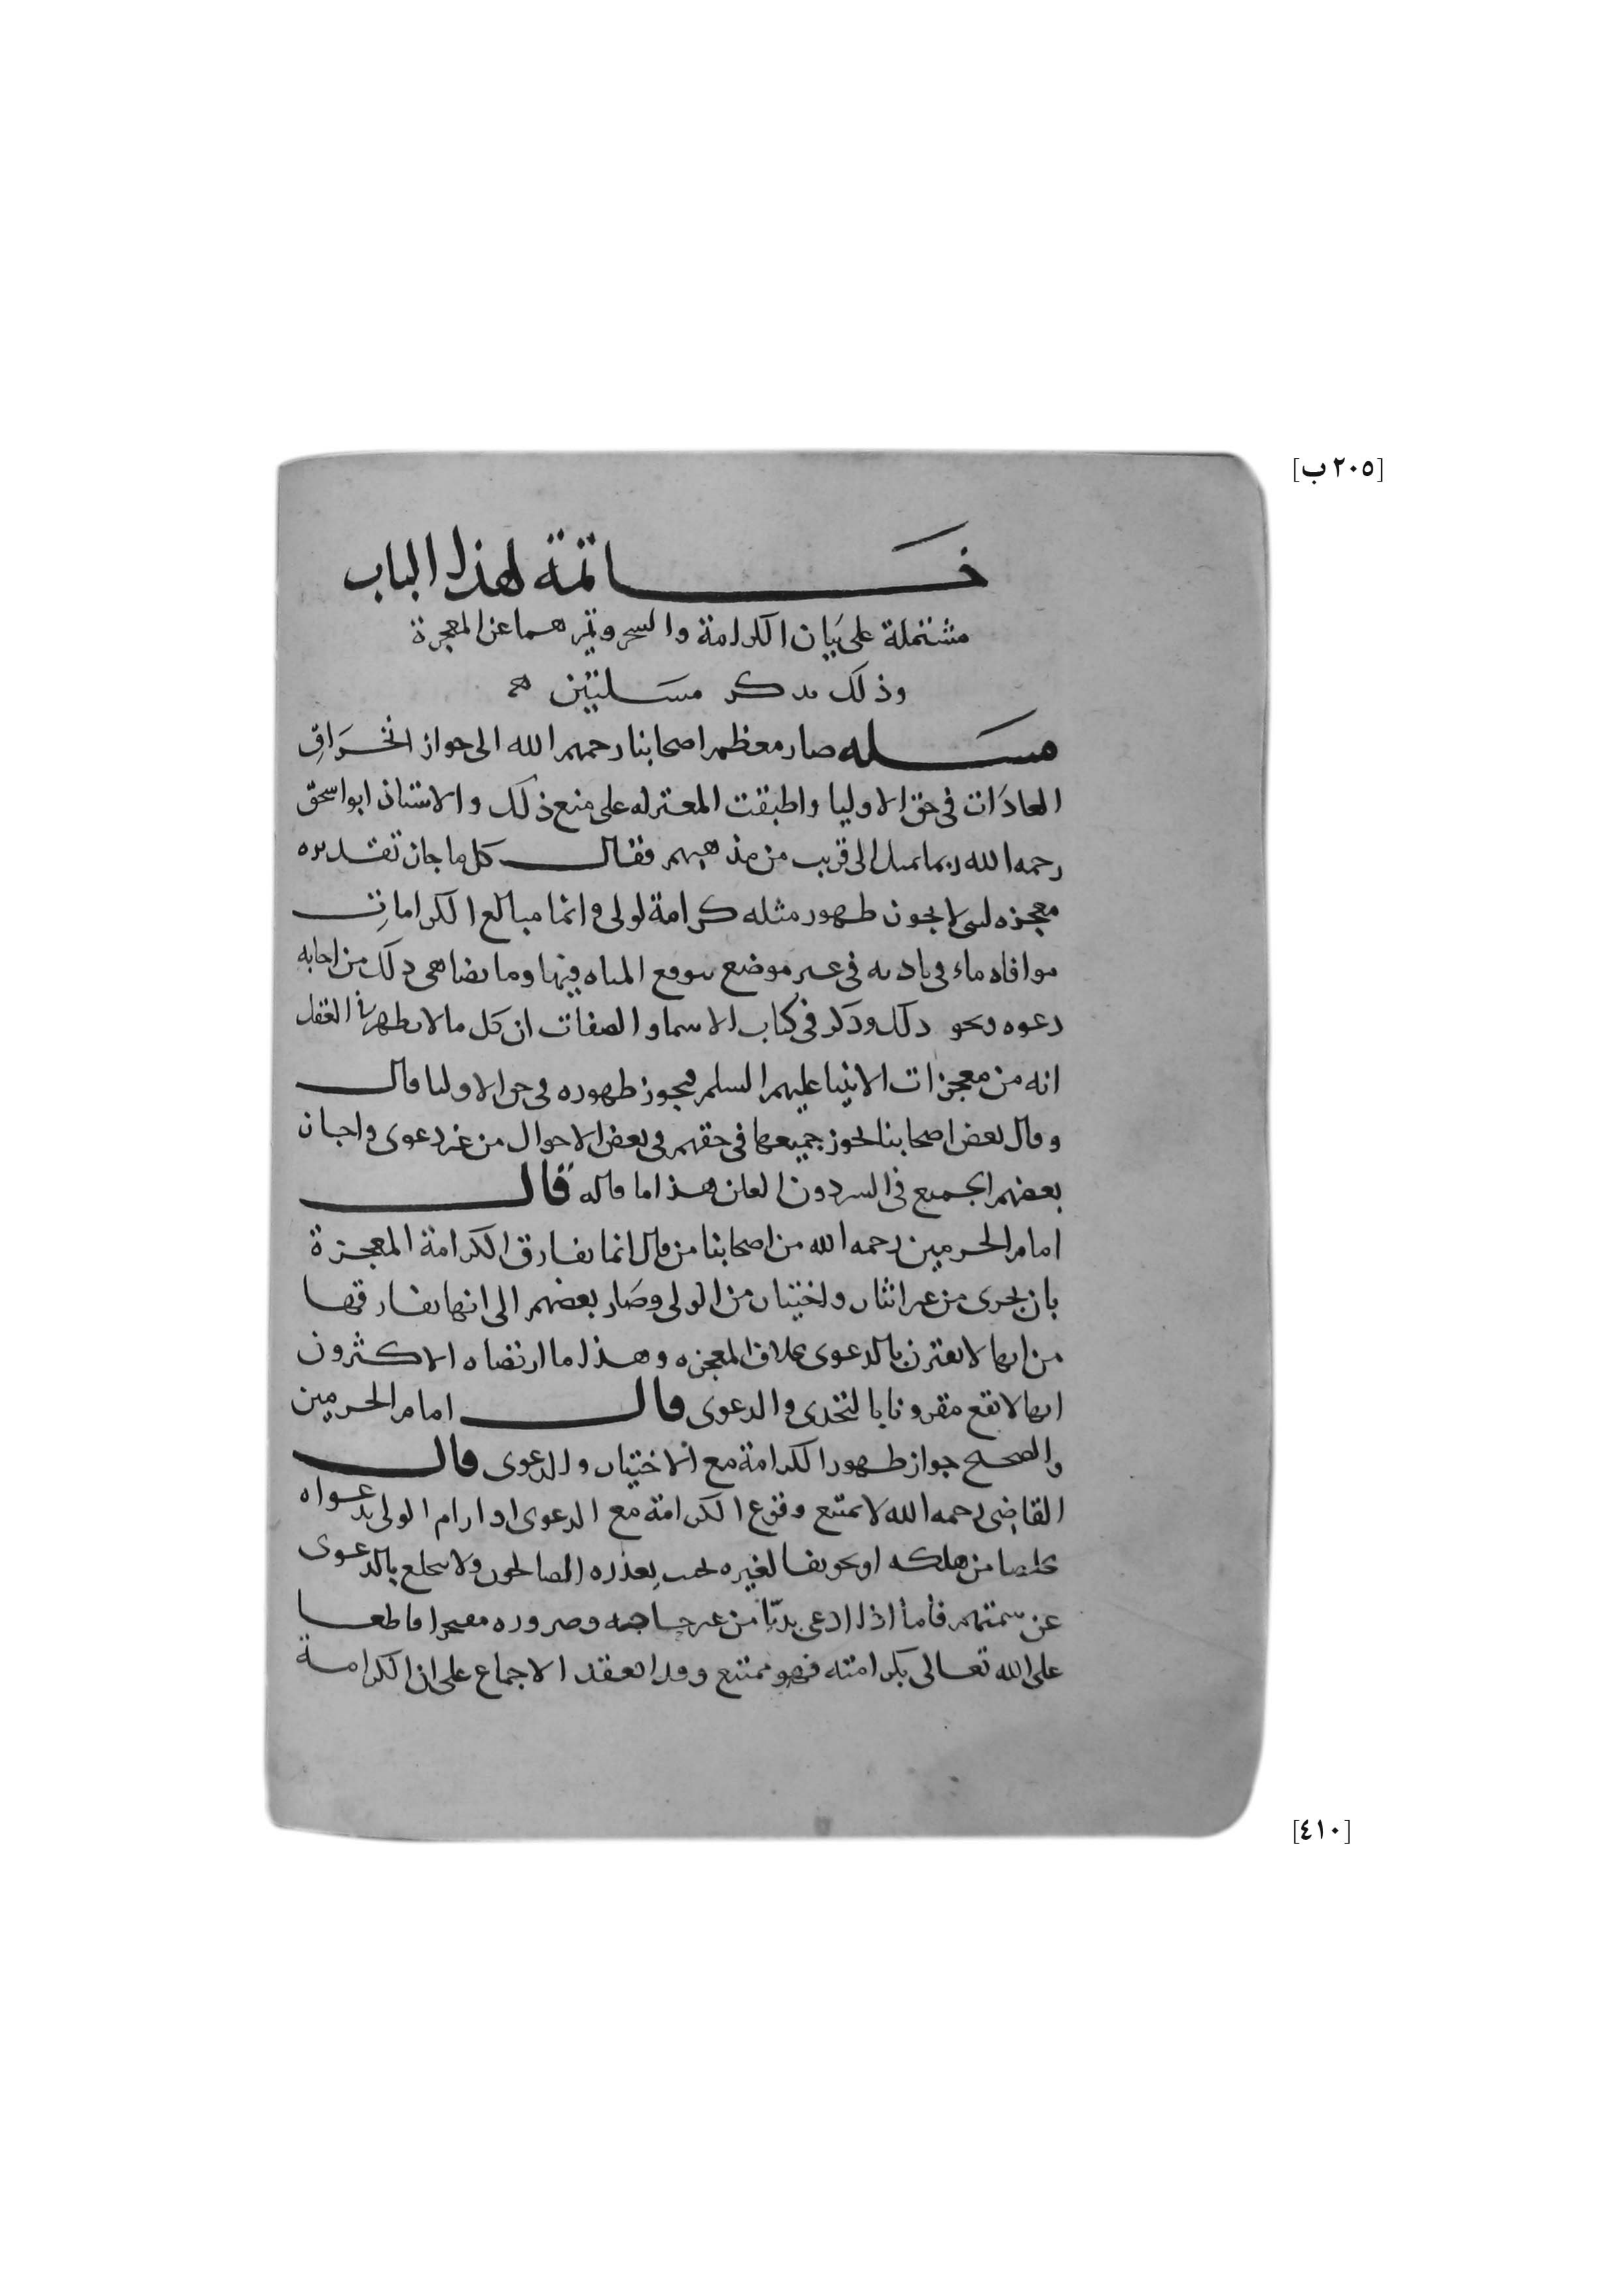 [٢٠٥ ب]
خاتمة لهذا الباب
مشتملة على بيان الكرامة والسحر وتميزهما عن المعجزة
وذلك بذكر مسلتين
مسله صار معظم اصحابنا رحمهم الله الى جواز انخراق
العادات في حق الاوليا واطبقت المعتزله على منع ذلك والاستاذ ابو اسحق
رحمه الله ربما يميل الى قريب من مذهبهم فقال كل ما جاز تقديره
معجزه لنبي لا يجوز ظهور مثله كرامة لولي وانما مبالغ الكرامات
موافاه ماء في باديه في غير موضع يتوقع المياه فيها وما يضاهي ذلك من اجابه
دعوه ونحو ذلك وذكر في كتاب الاسما والصفات ان كل ما لا يظهر في العقل
انه من معجزات الانبيا عليهم السلم فيجوز ظهوره في حق الاوليا قال
وقال بعض اصحابنا يجوز جميعها في حقهم في بعض الاحوال من غير دعوى واجاز
بعضهم الجميع في السر دون العلن هذا ما قاله قال
امام الحرمين رحمه الله من اصحابنا من قال انما يفارق الكرامة المعجزة
بان يجرى من غير ايثار واختيار من الولي وصار بعضهم الى انها يفارقها
من انها لا يقترن بالدعوى بخلاف المعجزه وهذا ما ارتضاه الاكثرون
انها لا تقع مقرونا بالتحدى والدعوى قال امام الحرمين
والصحيح جواز ظهور الكرامة مع الاختيار والدعوى قال
القاضي رحمه الله لا يمتنع وقوع الكرامة مع الدعوى اذا رام الولي بدعواه
تخلصا من هلكه او تخويفا لغيره بحيث يعذره الصالحون ولا ينخلع بالدعوى
عن سمتهم فاما اذا ادعى بديّا من غير حاجه وضروره قاطعا
على الله تعالى بكرامته فهو ممتنع وقد انعقد الاجماع على ان الكرامة
[٤١٠]